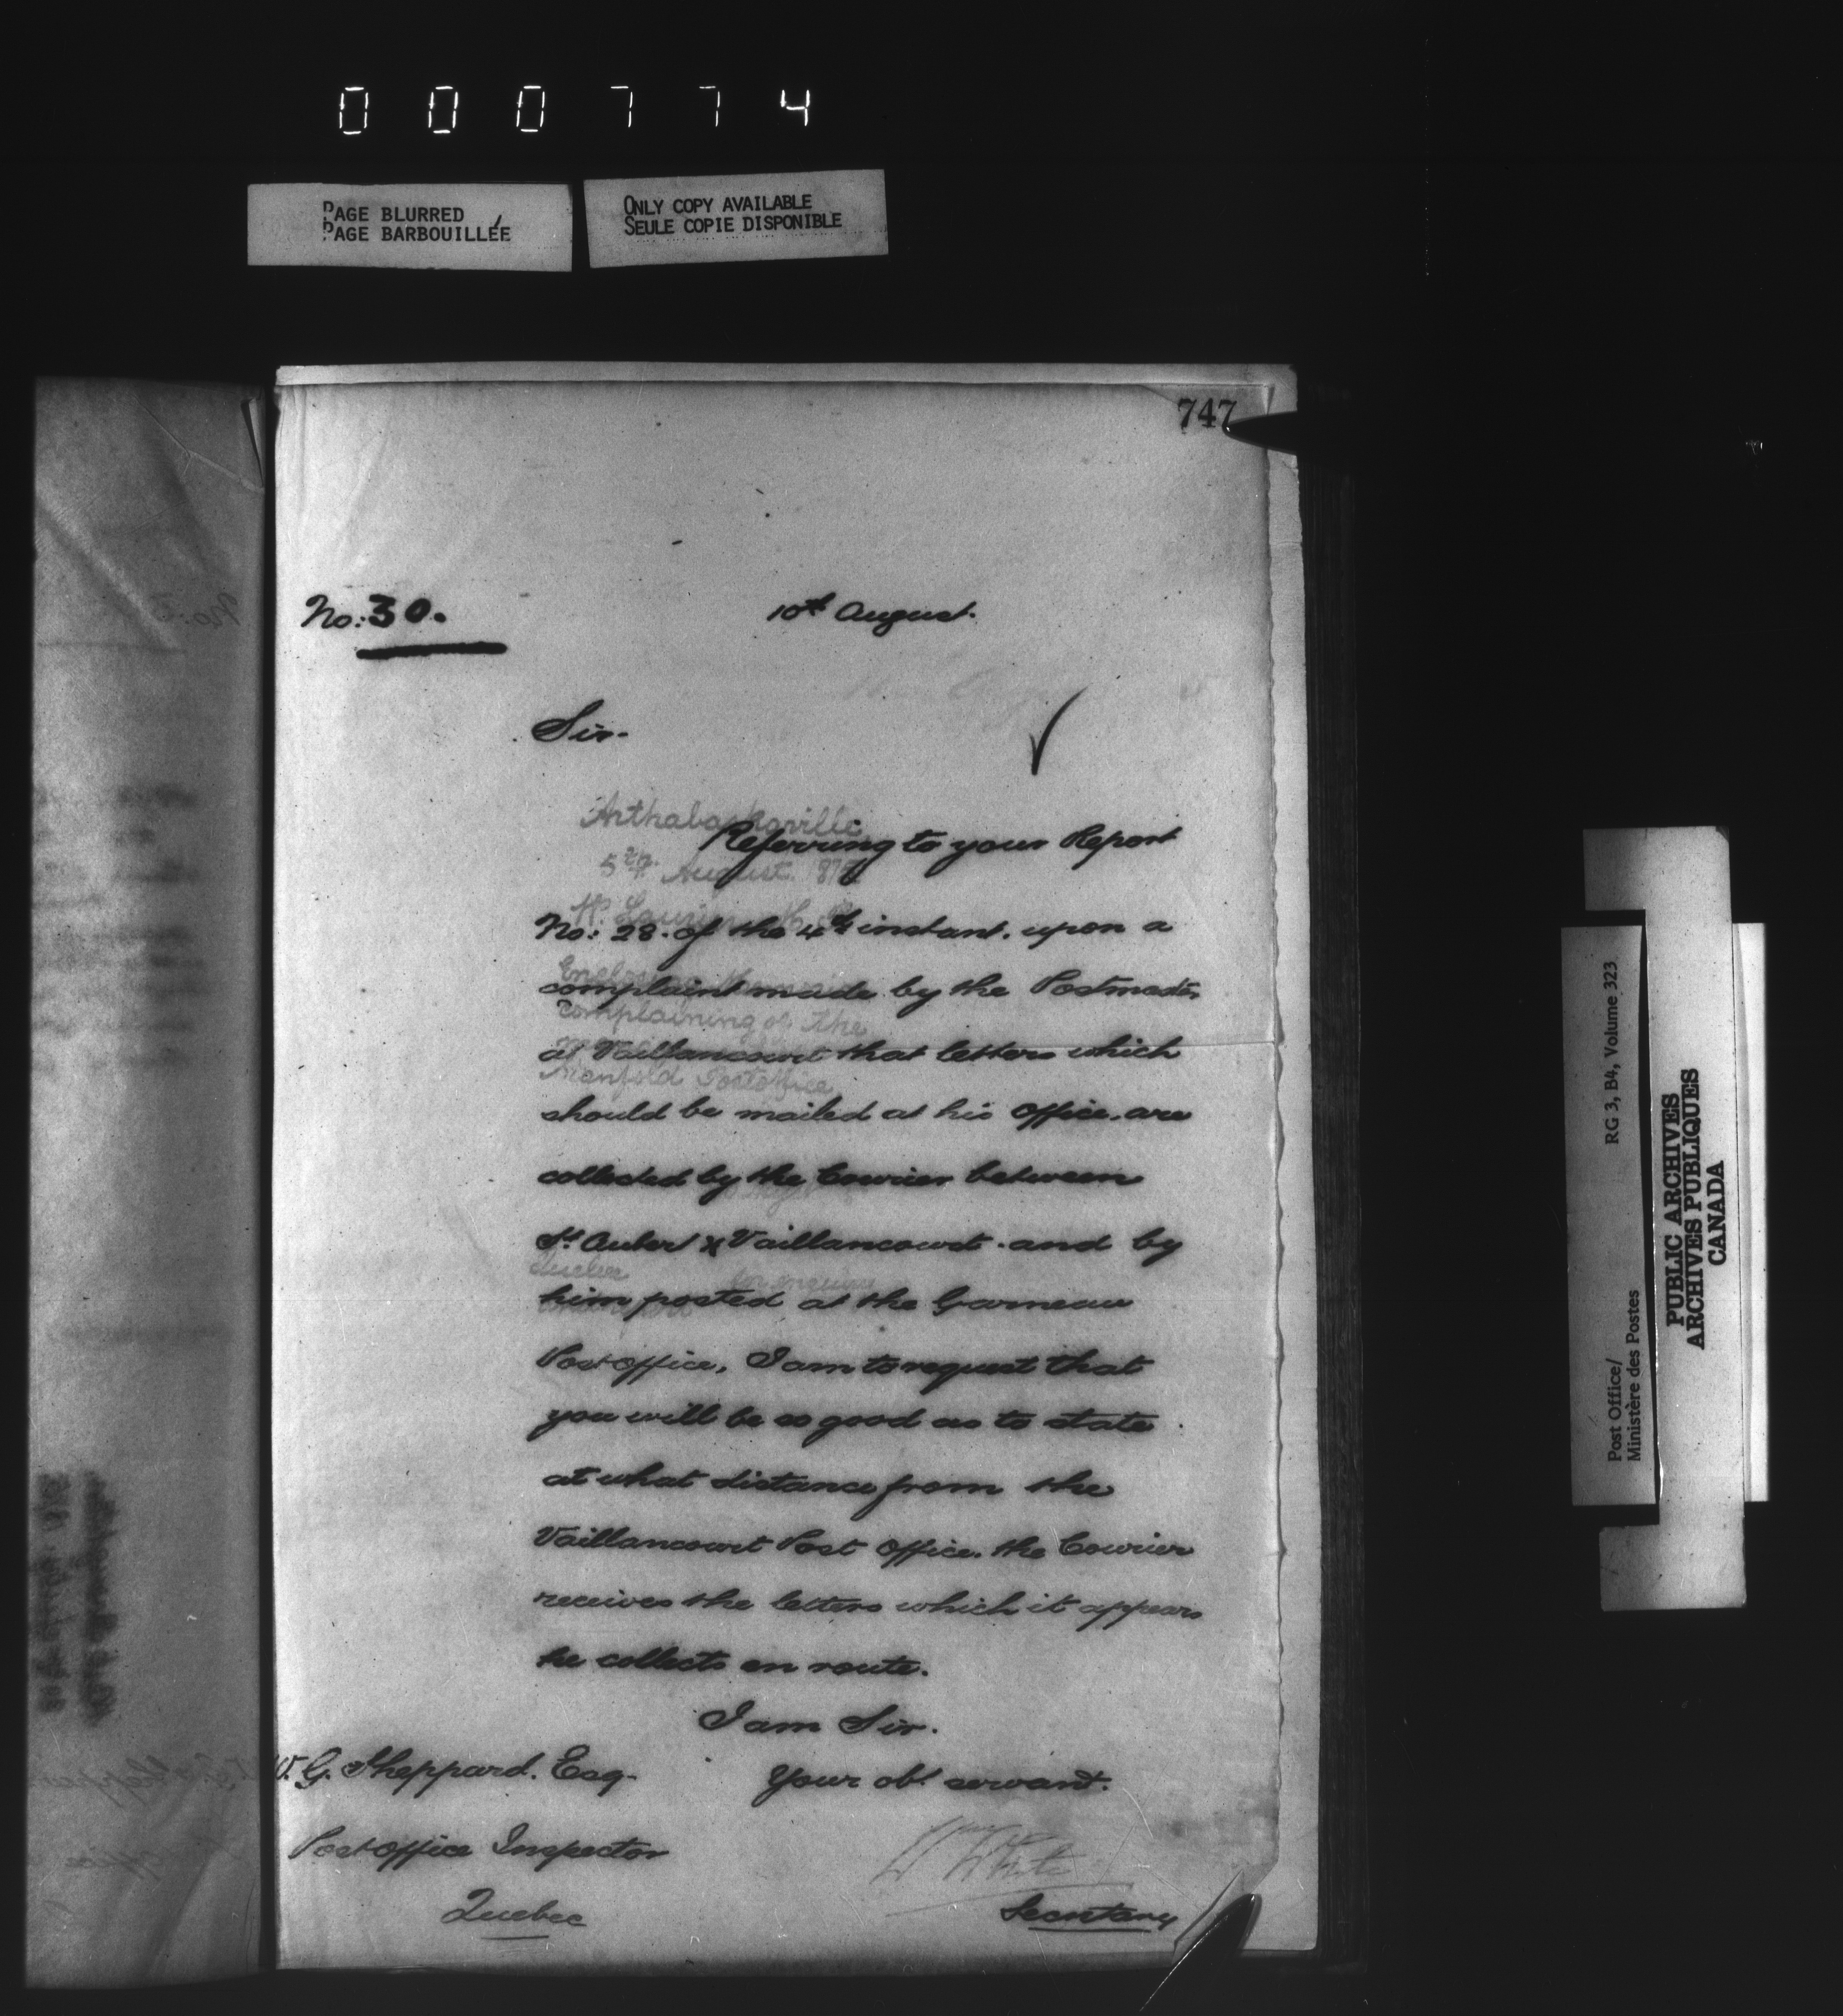 000774
PAGE BLURRED
PAGE BARBOUILLÉE
ONLY COPY AVAILABLE
SEULE COPIE DISPONIBLE
747
No: 30.
10th August.
Sir.
Arthabaskaville
Referring to your Report
5th August
No: 28. of the 4th instant. upon a
complaint made by the Postmaster
Complaining of the
at Vaillancourt that letters which
Post office
should be mailed at his Office. are
collected by the Courier between
St Aubert & Vaillancourt. and by
Quebec for
him posted at the Garneau
Post Office, I am to request that
you will be so good as to state
at what distance from the
Vaillancourt Post Office. the Courier
receives the letters which it appears
he collects en route.
I am Sir.
Your obt servant.
W. G. Sheppard. Esq.
Post Office Inspector
Quebec
Wm White
Secretary
Post Office/ RG 3, B4, Volume 323
Ministère des Postes
PUBLIC ARCHIVES
ARCHIVES PUBLIQUES
CANADA